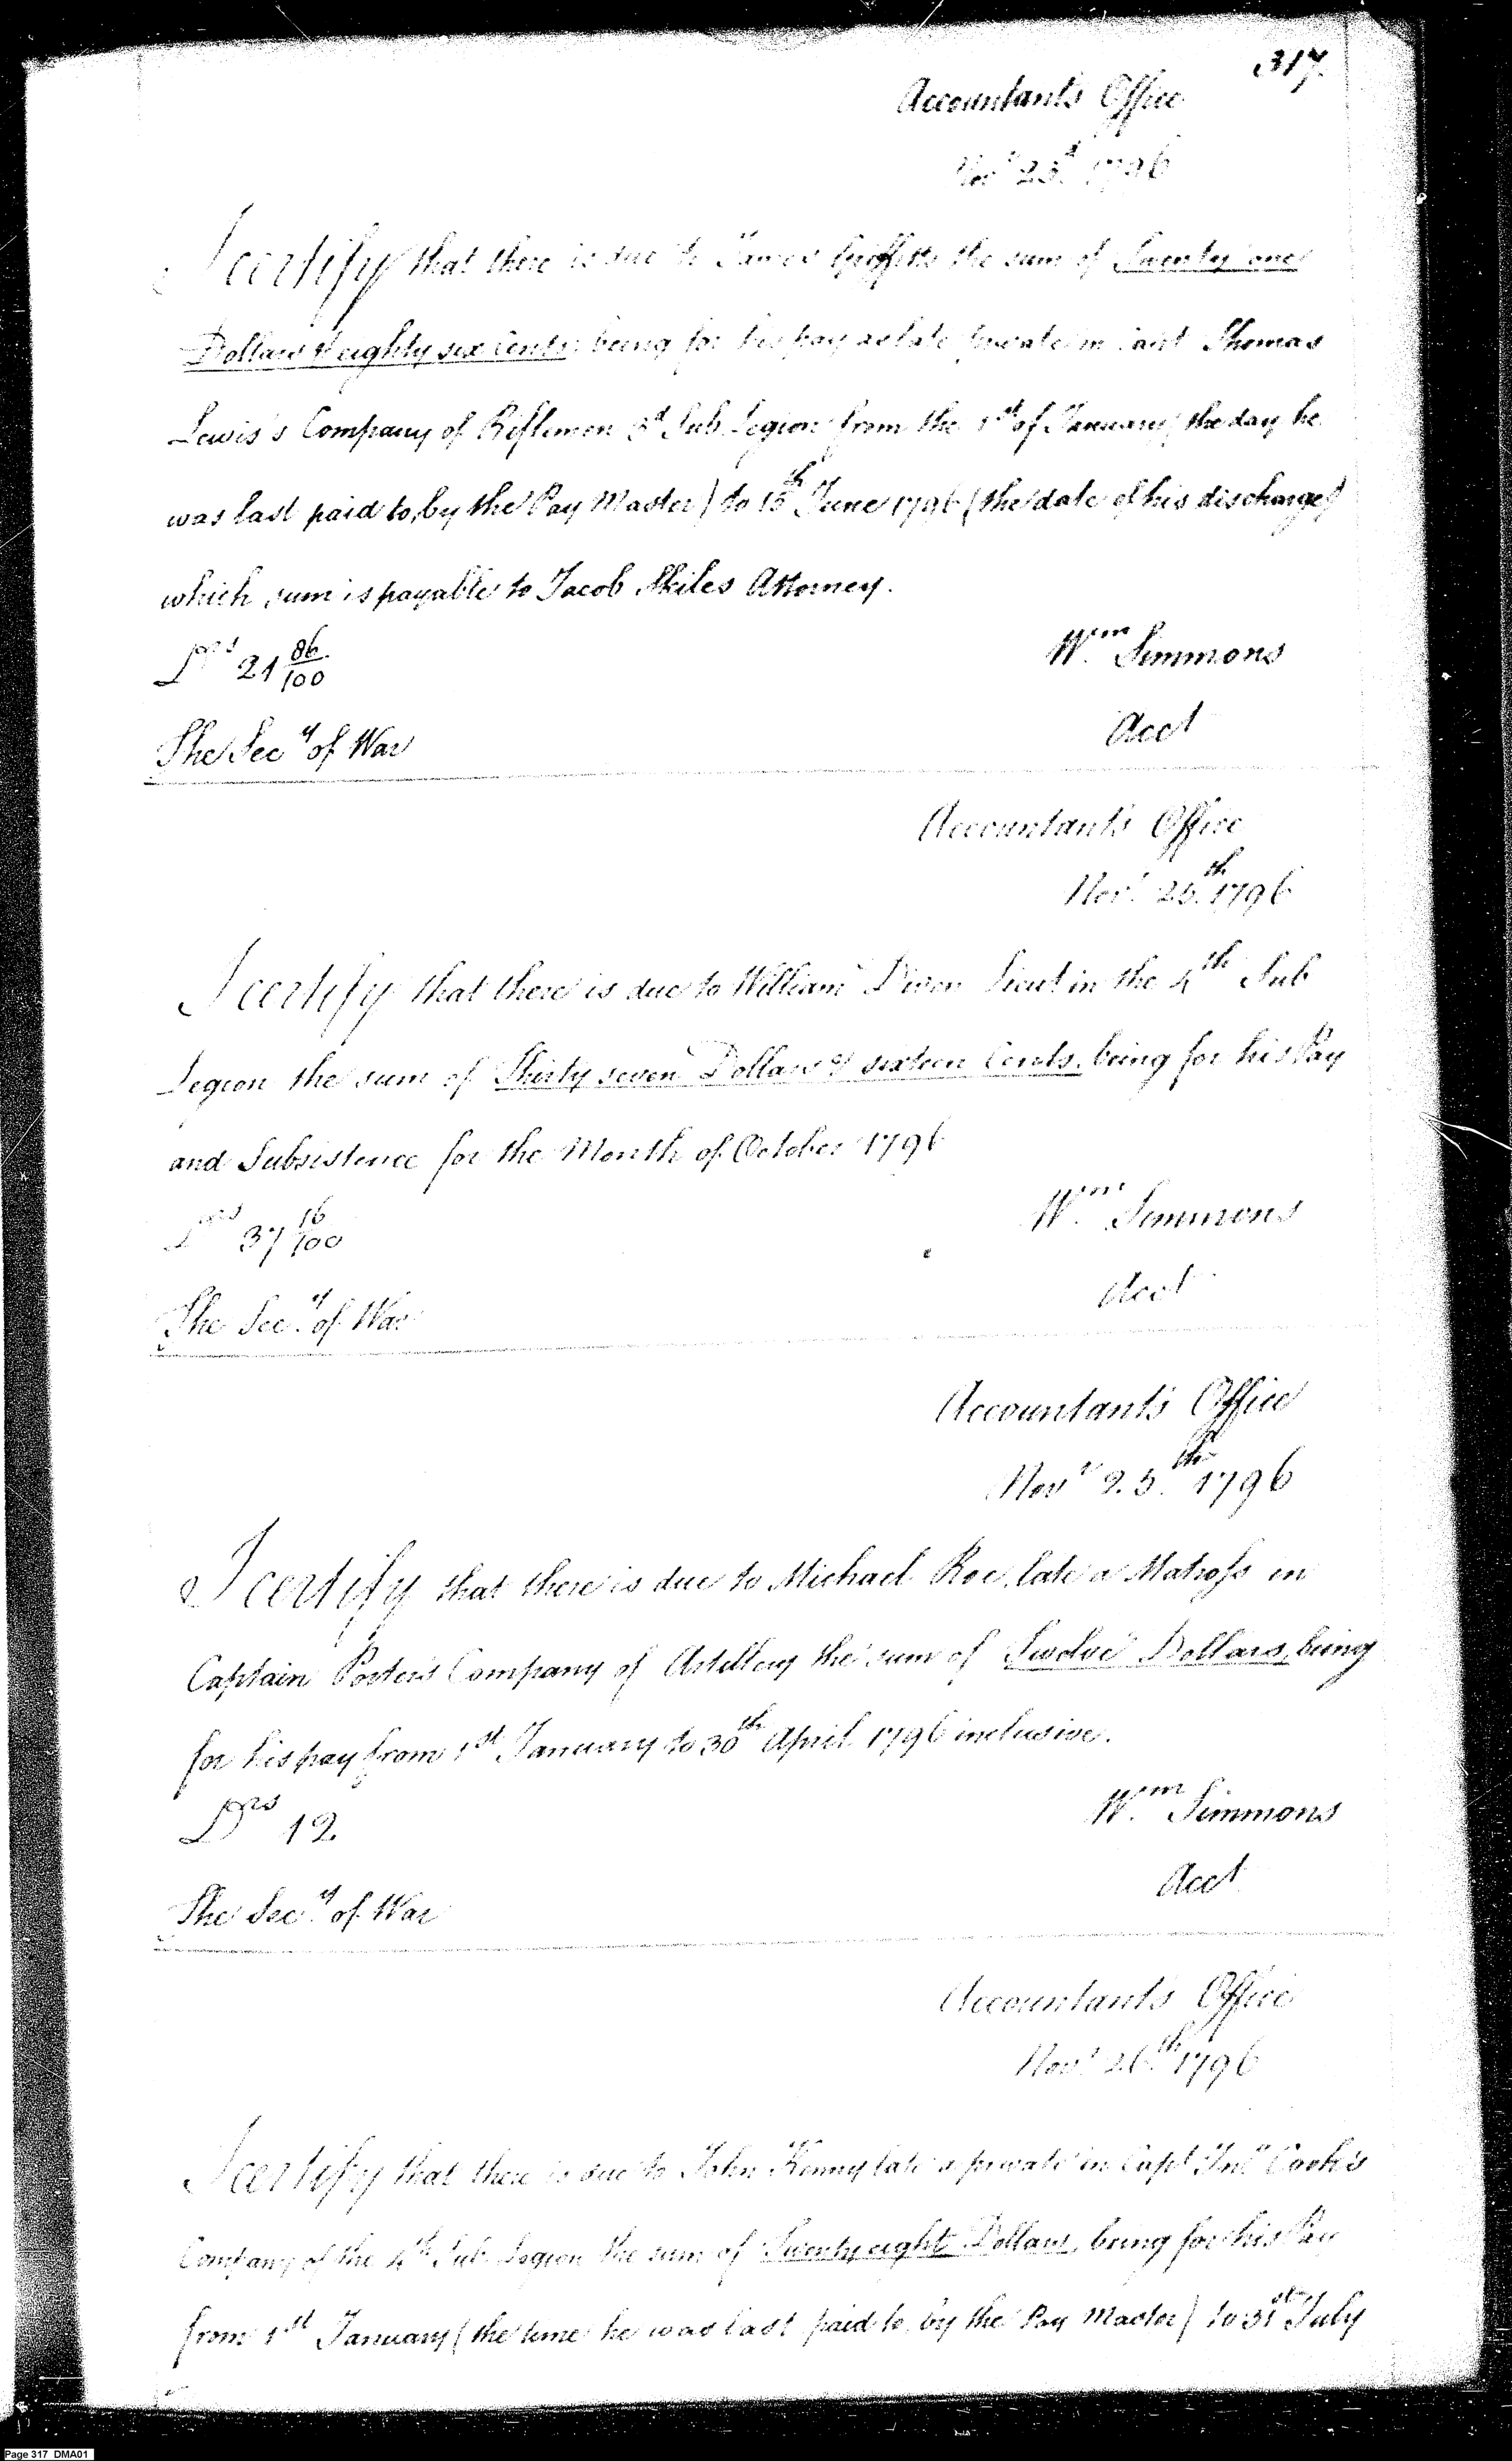 317.
Accountants Office
Nov.r 23.d 1796
I certify that there is due to James Griffiths the sum of Twenty one
Dollars & eighty six Cents, being for his pay as late private in Capt Thomas
Lewis's Company of Riflemen 3d Sub Legion from the 1st of January (the day he
was last paid to, by the Pay Master) to 15th June 1796 (the date of his discharge)
which sum is payable to Jacob Skiles Attorney.
Drs 21 86/100
Wm. Simmons
Acct
The Secy of War
Accountants Office
Novr. 25.th 1796
I certify that there is due to William Diven Lieut in the 4th Sub
Legion the sum of Thirty seven Dollars & sixteen Cents, being for his Pay
and Subsistence for the Month of October 1796
Drs 37 16/100
Wm. Simmons
Acct
The Secy. of War
Accountants Office
Novr 25.th 1796
I certify that there is due to Michael Roe, late a Matross in
Captain Porter's Company of Artillery the sum of Twelve Dollars, being
for his pay from 1st January to 30th April 1796 inclusive.
Drs 12.
Wm. Simmons
Acct
The Secy. of War
Accountants Office
Novr 26.th 1796
I certify that there is due to John Kenny late a private in Capt Jno Cook's
Company of the 4th Sub Legion the sum of Twenty eight Dollars, being for his Pay
from 1st January (the time he was last paid to, by the Pay Master) to 31st July
Page 317 DMA01